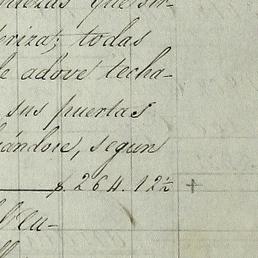 que sir-
eriza; todas
de adove techa-
sus puertas
ándose, segun
$. 264. 12½ +
Ven-